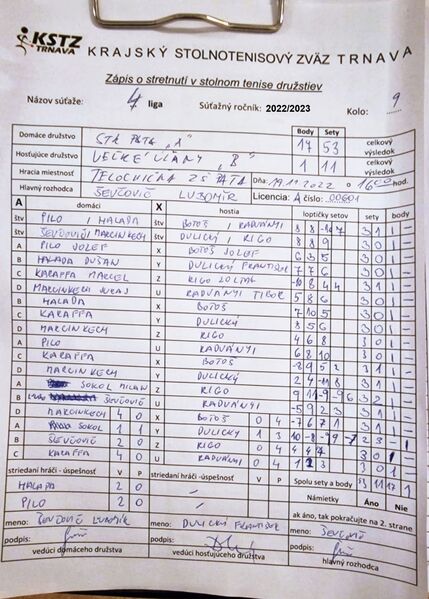 KSTZ
TRNAVA
KRAJSKÝ STOLNOTENISOVÝ ZVÄZ TRNAVA
Zápis o stretnutí v stolnom tenise družstiev
Názov súťaže: 4 liga Súťažný ročník: 2022/2023 Kolo: 9
Body Sety
Domáce družstvo STK PATA "A" 17 53 celkový výsledok
Hosťujúce družstvo VEĽKÉ ÚĽANY "B" 1 11 celkový výsledok
Hracia miestnosť TELOCVIČŇA ZŠ PATA Dňa: 19.11.2022 o 16:00 hod.
Hlavný rozhodca ŠEVČOVIČ ĽUBOMÍR Licencia: A číslo: 00601
A domáci X hostia loptičky setov sety body
štv PILO / HALADA štv BOTOŠ / RADVÁNYI 8 8 -10 7 3 1 1 -
štv ŠEVČOVIČ / MARCINKECH štv DULICKÝ / RIGO 8 8 9 3 0 1 -
A PILO JOZEF X BOTOŠ JOZEF 6 3 5 3 0 1 -
B HALADA DUŠAN Y DULICKÝ FRANTIŠEK 7 7 6 3 0 1 -
C KARAFFA MARCEL Z RIGO ZOLTÁN -10 8 4 4 3 1 1 -
D MARCINKECH JURAJ U RADVÁNYI TIBOR 5 8 6 3 0 1 -
B HALADA X BOTOŠ 7 10 5 3 0 1 -
C KARAFFA Y DULICKÝ 8 5 6 3 0 1 -
D MARCINKECH Z RIGO 4 6 8 3 0 1 -
A PILO U RADVÁNYI 6 8 10 3 0 1 -
C KARAFFA X BOTOŠ -8 9 5 2 3 1 1 -
D MARCINKECH Y DULICKÝ
A SOKOL MILAN Z RIGO 9 11 -9 -9 6 3 2 1 -
B ŠEVČOVIČ U RADVÁNYI -5 9 2 3 3 1 1 -
D MARCINKECH 4 0 X BOTOŠ 0 4 -7 6 7 1 3 1 1 -
A SOKOL 1 1 Y DULICKÝ 1 3 10 -8 -9 2 3 - 1
B ŠEVČOVIČ 2 0 Z RIGO 0 4 4 4 7 3 0 1 -
C KARAFFA 4 0 U RADVÁNYI 0 4 3 0 1 -
striedaní hráči - úspešnosť V P striedaní hráči - úspešnosť V P Spolu sety a body 53 11 17 1
HALADA 2 0 Námietky Áno Nie
PILO 2 0 ak áno, tak pokračujte na 2. strane
meno: ŠEVČOVIČ ĽUBOMÍR meno: DULICKÝ FRANTIŠEK meno: ŠEVČOVIČ
podpis: podpis: podpis:
vedúci domáceho družstva vedúci hosťujúceho družstva hlavný rozhodca